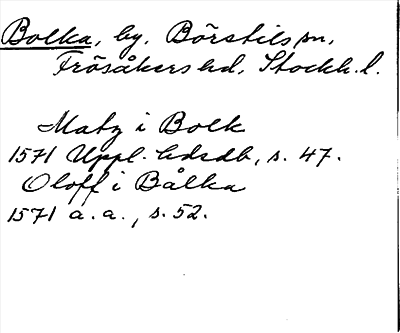 Bolka, by, Börstils sn,
Frösåkers hd, Stockh. l.
Matz i Bolk
1571 Uppl. hdsdb, s. 47.
Oloff i Bålka
1571 a.a., s. 52.